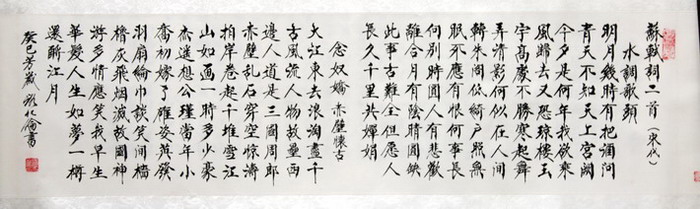 蘇軾詞二首(宋代)
水調歌頭
明月幾時有把酒問
青天不知天上宮闕
今夕是何年我欲乘
風歸去又恐瓊樓玉
宇高處不勝寒起舞
弄清影何似在人間
轉朱閣低綺户照無
眠不應有恨何事長
向别時圓人有悲歡
離合月有陰晴圓缺
此事古難全但愿人
長久千里共嬋娟
念奴嬌 赤壁懷古
大江東去浪淘盡千
古風流人物故壘西
邊人道是三國周郎
赤壁乱石穿空驚濤
拍岸卷起千堆雪江
山如画一時多少豪
杰遥想公瑾當年小
喬初嫁了雄姿英發
羽扇綸巾談笑間檣
櫓灰飛烟滅故國神
游多情應笑我早生
華發人生如夢一樽
還酹江月
癸巳芳歲 書